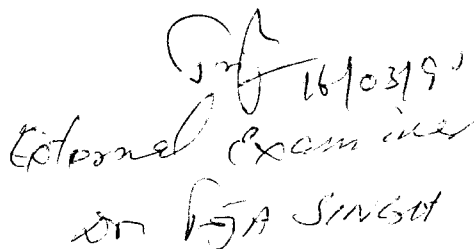 16/03/9
External Examiner
Dr TEJA SINGH